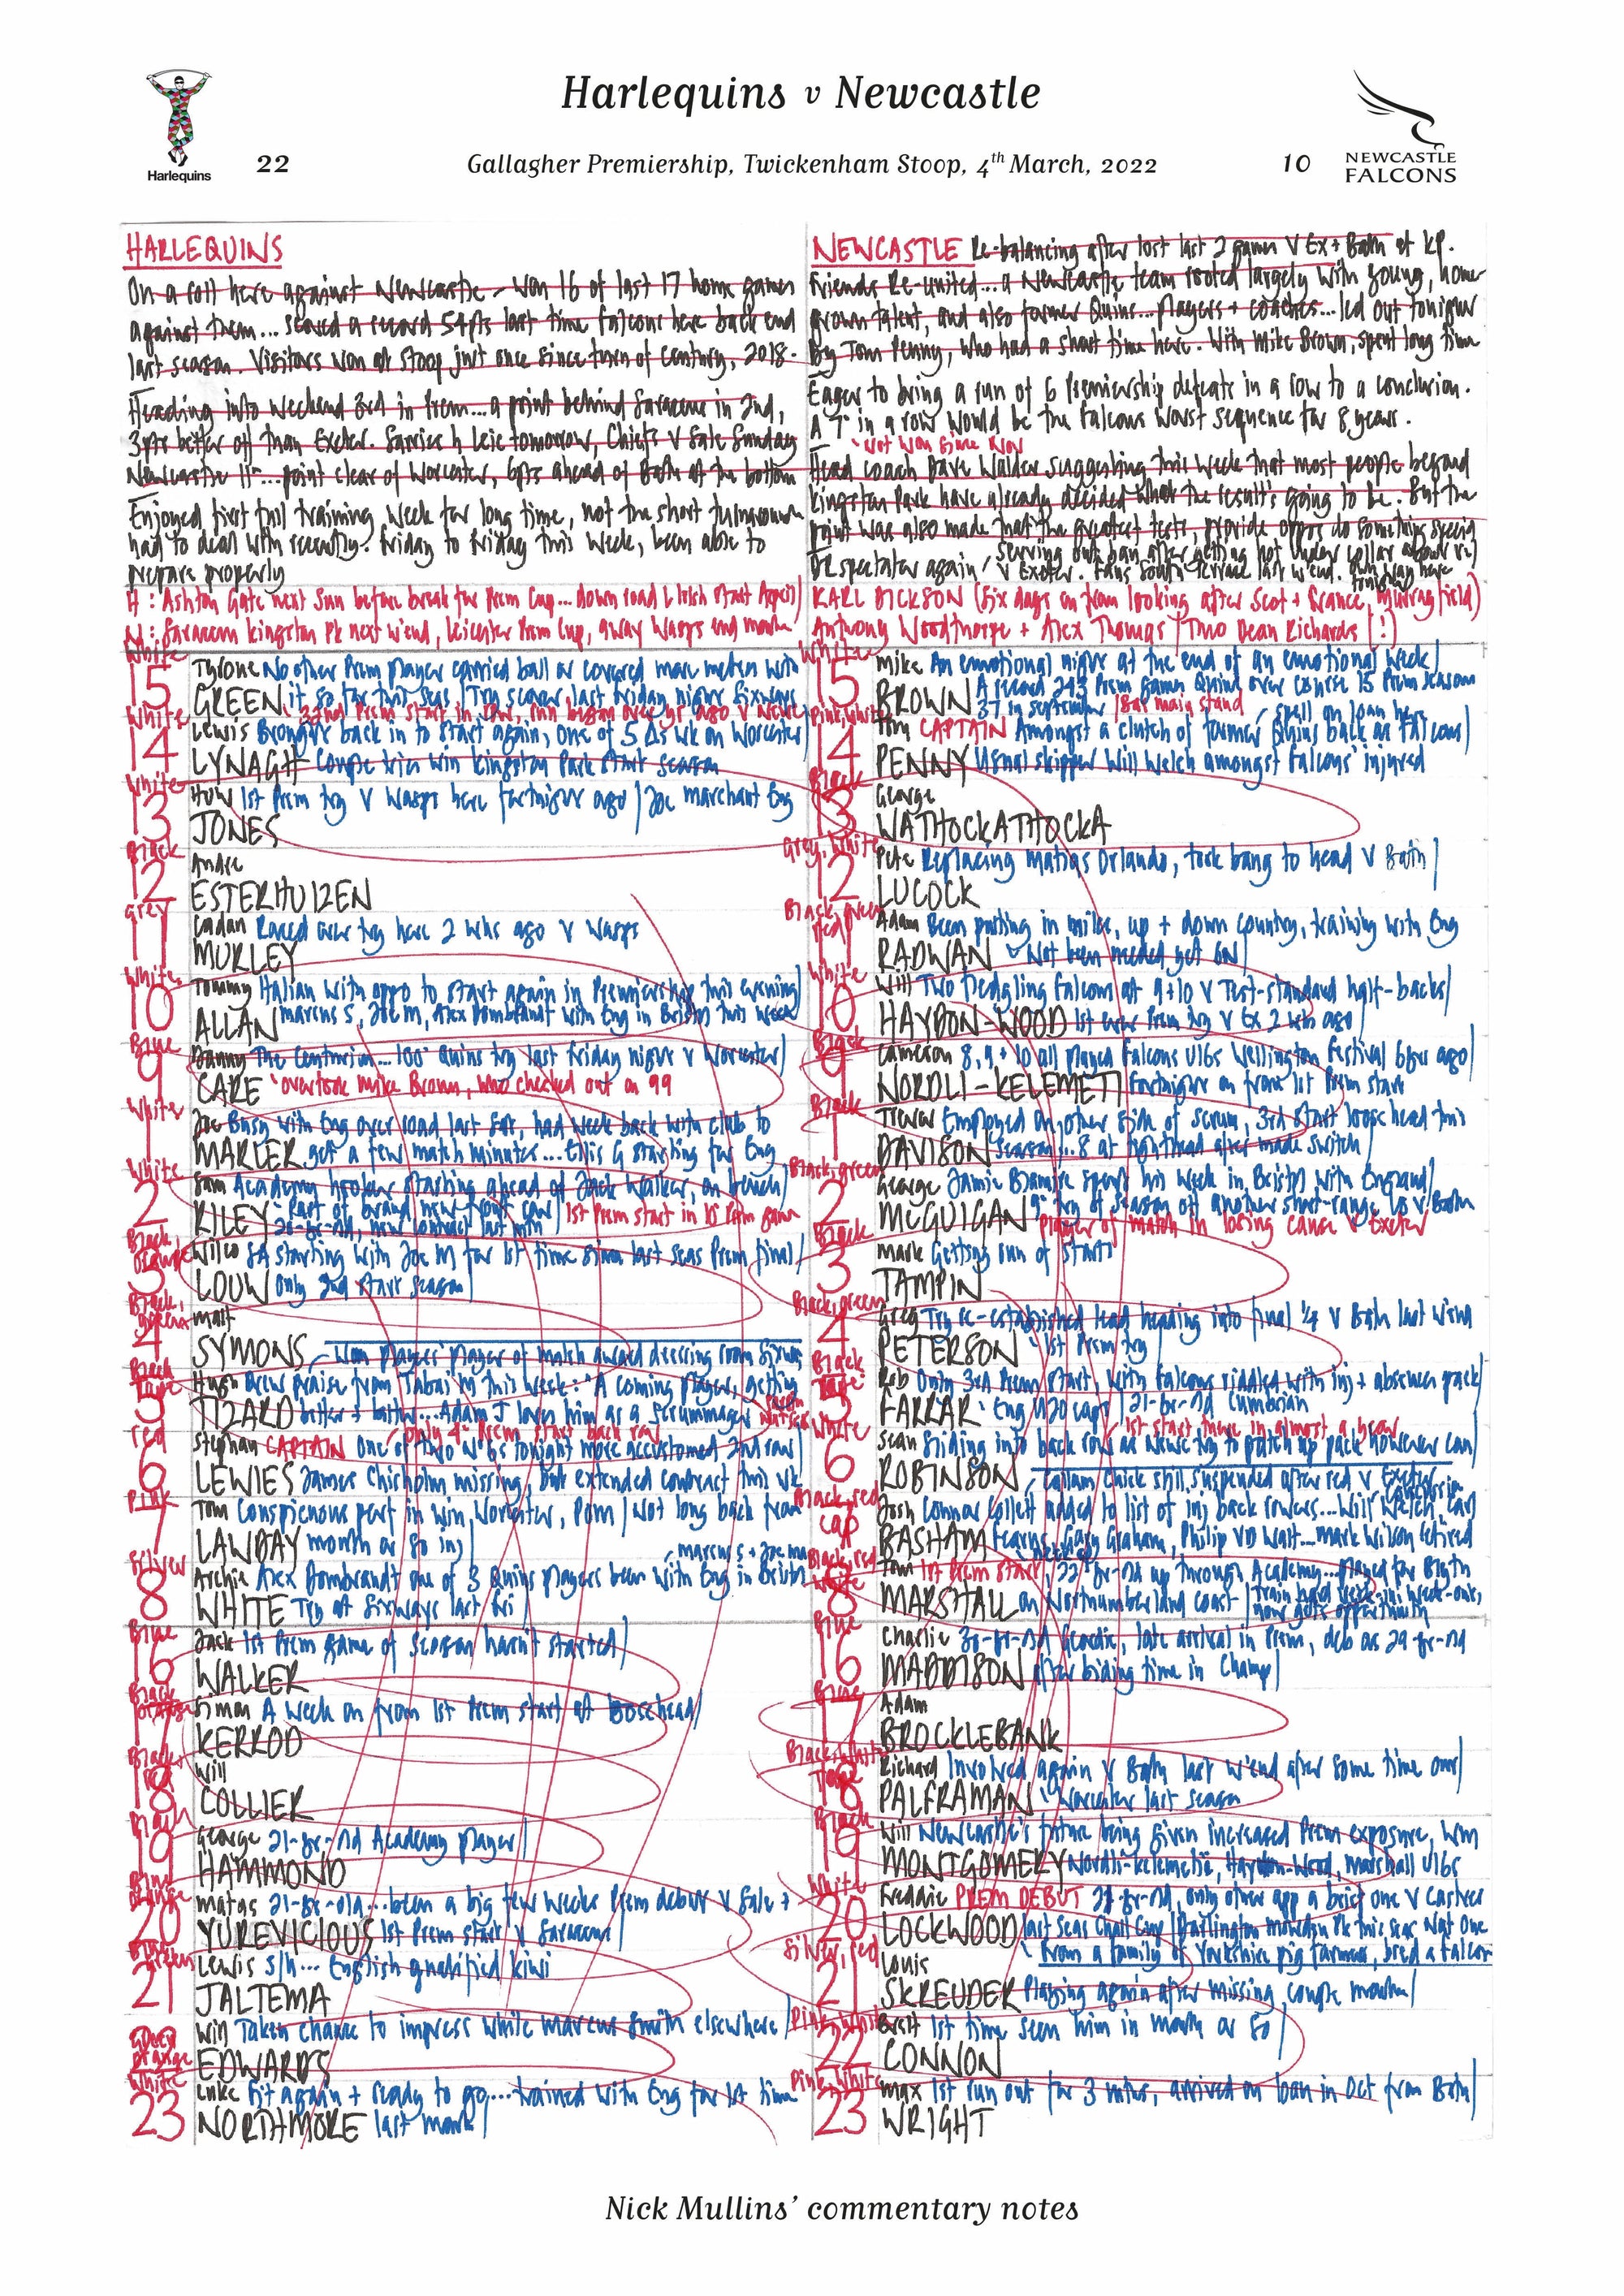 Harlequins v Newcastle
Harlequins
22
Gallagher Premiership, Twickenham Stoop, 4th March, 2022
10
NEWCASTLE
FALCONS
HARLEQUINS
On a roll here against Newcastle - won 16 of last 17 home games
against them... scored a record 54pts last time Falcons here back end
last season. Visitors won at Stoop just once since turn of century, 2018.
Heading into weekend 3rd in Prem... a point behind Saracens in 2nd,
3pts better off than Exeter. Sarries h Leic tomorrow, Chiefs v Sale Sunday
Newcastle 11th... point clear of Worcester, 6pts ahead of Bath at the bottom
Enjoyed first full training week for long time, not the short turnaround
had to deal with recently. Friday to Friday this week, been able to
prepare properly
H: Ashton Gate next Sun before break for Prem Cup... down road L Irish start April
N: Saracens Kingston Pk next w'end, Leicester Prem Cup, away Wasps end month
NEWCASTLE Re-balancing after lost last 2 games v Ex + Bath at KP.
Friends Re-united... a Newcastle team rooted largely with young, home
grown talent, and also former Quins... players + coaches... led out tonight
by Tom Penny, who had a short time here. With Mike Brown, spent long time
Eager to bring a run of 6 Premiership defeats in a row to a conclusion.
A 7th in a row would be the Falcons worst sequence for 8 years.
Not won since Nov
Head coach Dave Walder suggesting this week that most people beyond
Kingston Park have already decided what the result's going to be. But the
point was also made that the greatest tests, provide oppos do something special
DR spectator again / serving out ban after getting hot under collar about
v Exeter. Fans South Terrace last w'end.
KARL DICKSON (Six days on from looking after Scot + France, Murrayfield)
Anthony Woodthorpe + Alex Thomas | TMO Dean Richards (!)
White
15 Tyrone No other Prem player carried ball or covered more metres with
GREEN it so far this seas | Try scorer last Friday night Sixways
22nd Prem start in row, run began over yr ago v Newc
White
14 Lewis Brought back in to start again, one of 5 Δs wk on Worcester
LYNAGH Couple tries win Kingston Park start season
White
13 Huw 1st Prem try v Wasps here fortnight ago | Joe Marchant Eng
JONES
Black
12 Andre
ESTERHUIZEN
Grey
11 Cadan Raced over try here 2 wks ago v Wasps
MURLEY
White
10 Tommy Italian with oppo to start again in Premiership this evening
ALLAN Marcus S, Joe M, Alex Dombrandt with Eng in Bristol this week
Blue
9 Danny The Centurion... 100th Quins try last Friday night v Worcester
CARE overtook Mike Brown, who checked out on 99
White
1 Joe Busy with Eng over road last Sat, had week back with club to
MARLER get a few match minutes... Ellis G starting for Eng
White
2 Sam Academy hooker starting ahead of Jack Walker, on bench
RILEY Part of brand new front row | 1st Prem start in 10 Prem games
20-yr-old, new contract last mth
Black orange
3 Wilco SA starting with Joe M for 1st time since last seas Prem final
LOUW only 2nd start season
Black, green
4 Matt
SYMONS Won players' player of match award dressing room Sixways
Black tape
5 Hugh Drew praise from Tabai M this week: "A coming player, getting
TIZARD better + better... Adam J loves him as a scrummager
only 4th Prem start back row
red
6 Stephan CAPTAIN One of two No 6s tonight more accustomed 2nd row
LEWIES James Chisholm missing, but extended contract this wk
PINK
7 Tom Conspicuous part in win, Worcester, PoM | Not long back from
LAWDAY month or so inj
Marcus S + Joe Ma
Silver
8 Archie Alex Dombrandt one of 3 Quins players been with Eng in Bristol
WHITE Try at Sixways last Fri
Blue
16 Jack 1st Prem game of season hasn't started
WALKER
Black orange
17 Simon A week on from 1st Prem start at loosehead
KERROD
Black + red
18 Will
COLLIER
19 George 21-yr-old Academy player
HAMMOND
Blue orange
20 Matas 21-yr-old... been a big few weeks Prem debut v Sale +
YUREVICIOUS 1st Prem start v Saracens
Green
21 Lewis S/H... English qualified kiwi
JALTEMA
Grey orange
22 Will Taken chance to impress while Marcus Smith elsewhere
EDWARDS
White
23 Luke Fit again + ready to go... trained with Eng for 1st time
NORTHMORE last month
White
15 Mike An emotional night at the end of an emotional week
BROWN A record 243 Prem games Quins over course 15 Prem seasons
37 in September | Bar main stand
Pink, White
spell on loan here
14 Tom CAPTAIN Amongst a clutch of former Quins back as Falcons
PENNY Usual skipper Will Welch amongst Falcons' injured
Black
13 George
WATHOCKATHOCKA
Grey, White
12 Pete Replacing Matias Orlando, took bang to head v Bath
LUCOCK
Black, green red
11 Adam Been putting in miles, up + down country, training with Eng
RADWAN Not been needed yet 6N
White
10 Will Two fledgling Falcons at 9+10 v Test-standard half-backs
HAYDON-WOOD 1st ever Prem try v Ex 2 wks ago
Black
9 Cameron 8, 9 + 10 all played Falcons U16s Wellington Festival 6yrs ago
NORDLI-KELEMETI Fortnight on from 1st Prem start
Black
1 Trevor Employed on other side of scrum, 3rd start loosehead this
DAVISON season... 8 at tighthead after made switch
Black, green
2 George Jamie Blamire spent his week in Bristol with England
MCGUIGAN 9th try of season off another short-range LO v Bath
Player of match in losing cause v Exeter
Black
3 Mark Getting run of starts
TAMPIN
Black, green
4 Greg Try re-established lead heading into final 1/4 v Bath last w'end
PETERSON 1st Prem try
Black Tape
5 Rob Only 3rd Prem start, with Falcons riddled with inj + absences pack
FARRAR Eng U20 caps | 21-yr-old Cumbrian
1st start there in almost a year
White
6 Sean Sliding into back row as Newc try to patch up pack however can
ROBINSON Callum Chick still suspended after red v Exeter
Black, red cap
7 Josh Connor Collett added to list of inj back rowers... Will Welch, Carl
BASHAM Fearns, Gary Graham, Philip VD Walt... Mark Wilson retired
Black, red White
8 Tom 1st Prem start | 22-yr-old up through Academy... played for Blyth
MARSHALL on Northumberland coast | Train hard week-in week-out,
now gets opportunity
Blue
16 Charlie 30-yr-old Geordie, late arrival in Prem, deb as 29-yr-old
MADDISON after biding time in Champ
Blue
17 Adam
BROCKLEBANK
Black, White Tape
18 Richard Involved again v Bath last w'end after some time out
PALFRAMAN Worcester last season
Black
19 Will Newcastle's future being given increased Prem exposure, Wm
MONTGOMERY Nordli-Kelemetie, Haydon-Wood, Marshall U16s
White
20 Freddie PREM DEBUT 21-yr-old, only other app a brief one v Castres
LOCKWOOD last seas Chall Cup | Darlington Mowden Pk this seas Nat One
from a family of Yorkshire pig farmers, bred a Falcon
Silver, red
21 Louis
SKREUDER Playing again after missing couple months
Pink, White
22 Brett 1st time seen him in month or so
CONNON
Pink, White
23 Max 1st run out for 3 mths, arrived on loan in Oct from Bath
WRIGHT
Nick Mullins' commentary notes